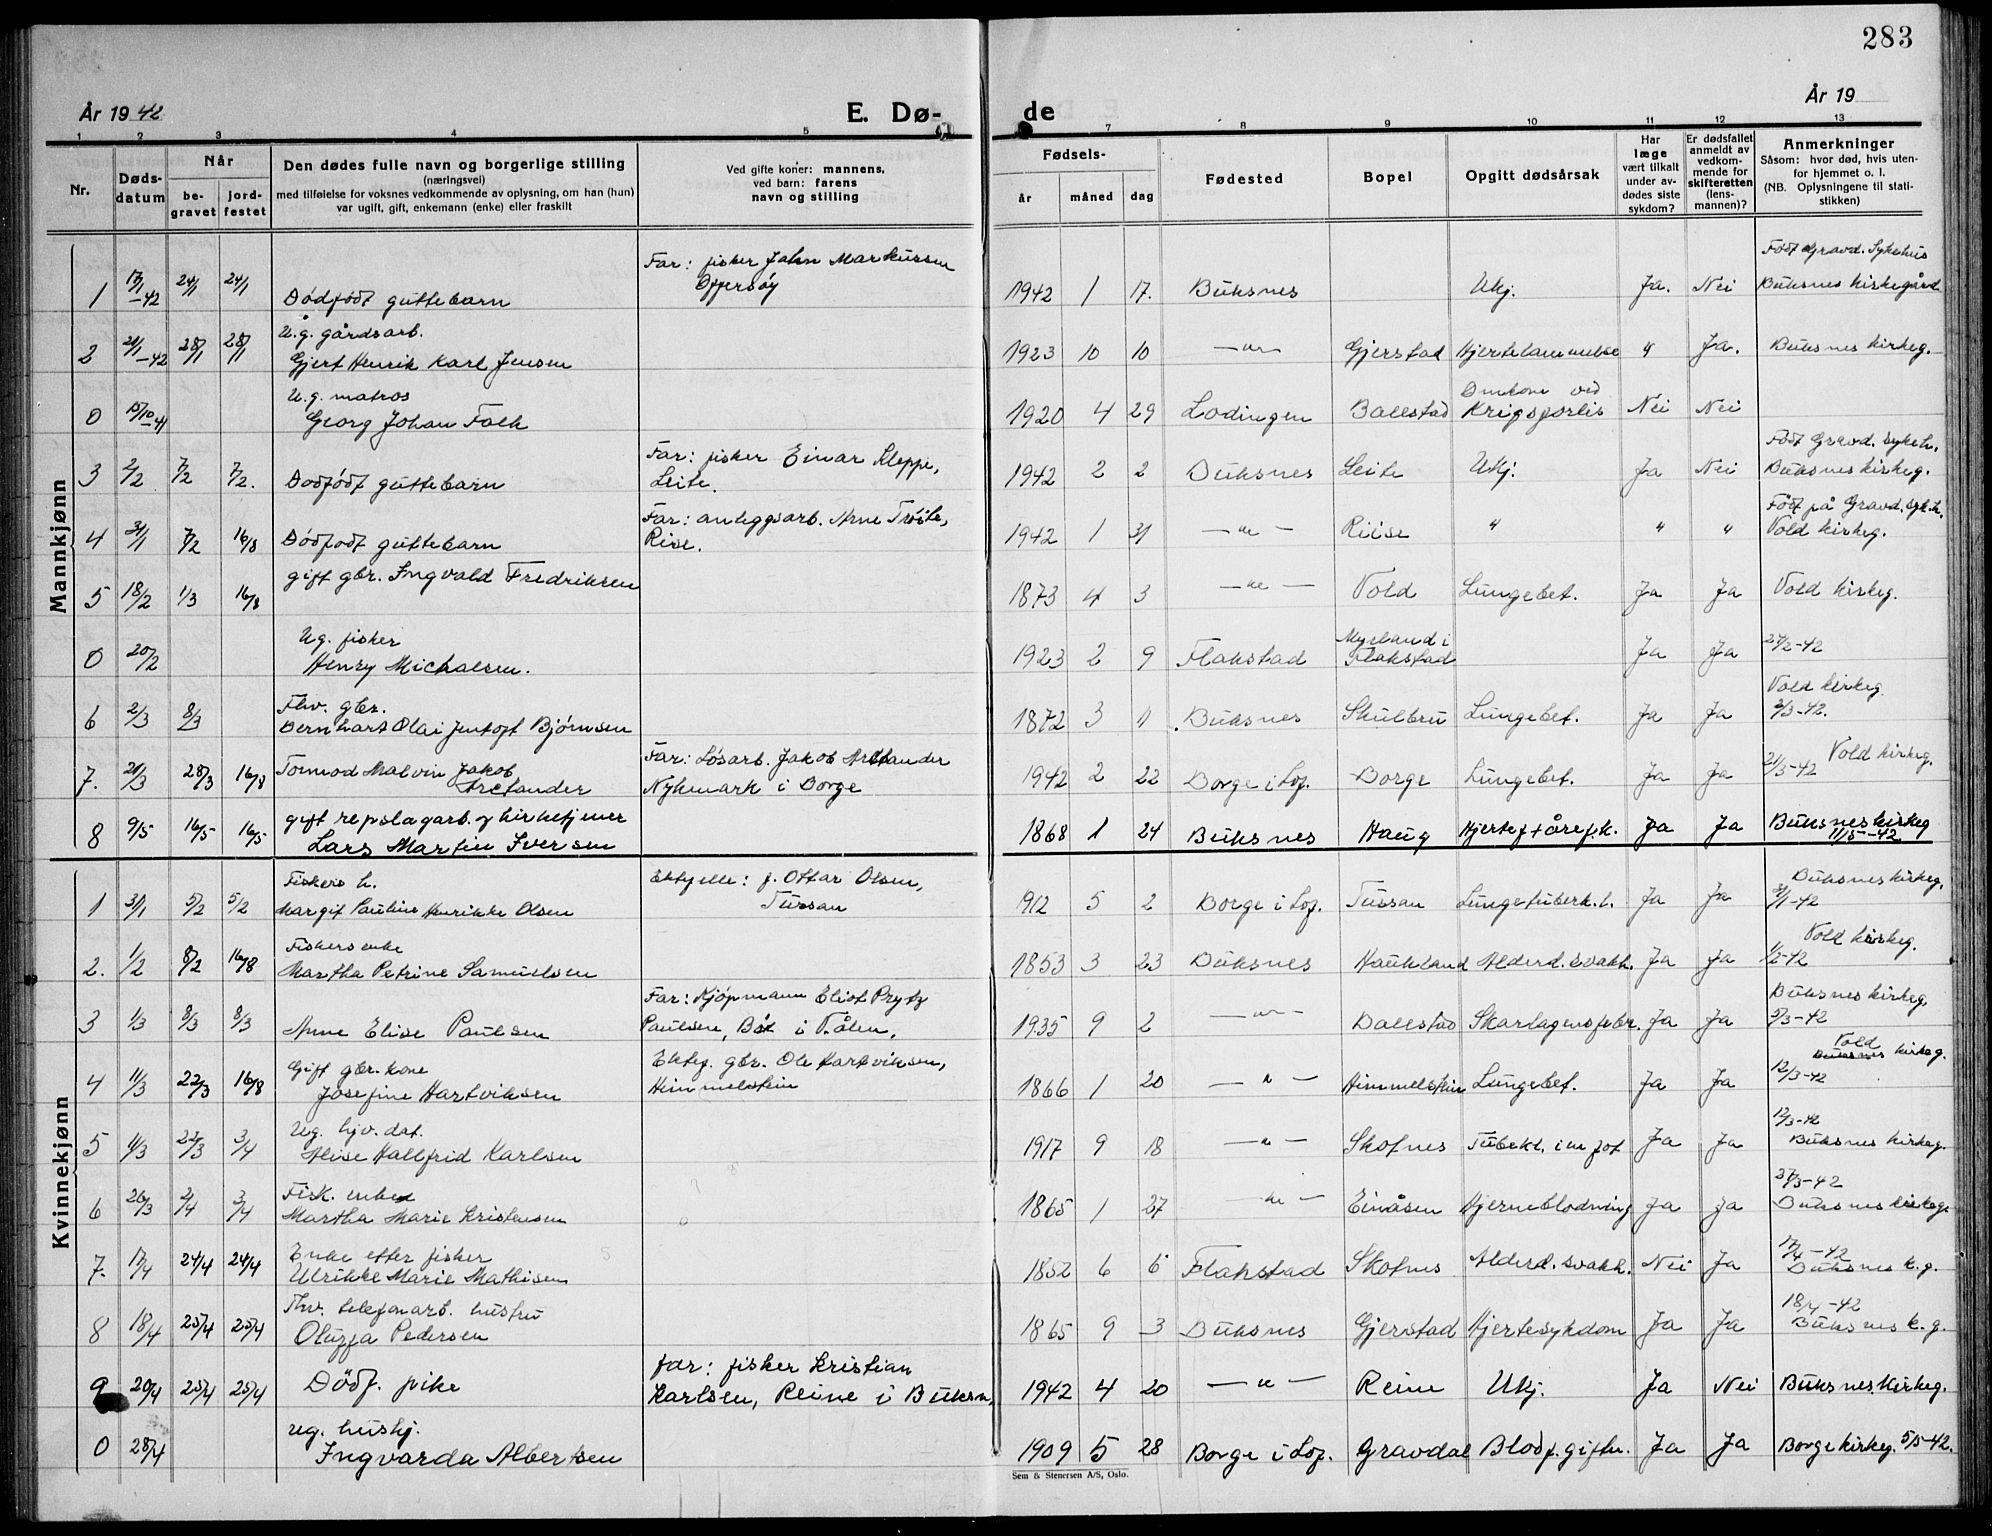 283
År 1942
E. Dø-
de
År 19
1 2 3 4 5 7 8 9 10 11 12 13
Nr.
Døds-
datum
Når
be-
gravet
jord-
festet
Den dødes fulle navn og borgerlige stilling
(næringsvei)
med tilføielse for voksnes vedkommende av oplysning, om han (hun)
var ugift, gift, enkemann (enke) eller fraskilt
Ved gifte koner: mannens,
ved barn: farens
navn og stilling
Fødsels-
år måned dag
Fødested
Bopel
Opgitt dødsårsak
Har
læge
vært tilkalt
under av-
dødes siste
sykdom?
Er dødsfallet
anmeldt av
vedkom-
mende for
skifteretten
(lens-
mannen)?
Anmerkninger
Såsom: hvor død, hvis uten-
for hjemmet o. l.
(NB. Oplysningene til stati-
stikken)
Mannkjønn
Far: fisker John Markussen Født Gravd. Sykehus
1 17/1-42 24/1 24/1 Dødfødt guttebarn Offersøy 1942 1 17. Buksnes Ukj. Ja. Nei Buksnes kirkegård
U.g. gårdsarb.
2 21/1-42 28/1 28/1 Gjert Henrik Karl Jensen 1923 10 10 —"— Gjerstad Hjertelammelse " Ja. Buksnes kirkeg.
U.g. matros Omkom ved
0 15/10-41 Georg Johan Falk 1920 4 29 Lødingen Ballstad Krigsforlis Nei Nei
Far: fisker Einar Kleppe, Født Gravd. sykeh.
3 2/2 7/2 7/2. Dødfødt guttebarn Leite. 1942 2 2 Buksnes Leite Ukj. Ja Nei Buksnes kirkeg.
Far: anleggsarb. Arne Født på Gravd. syk.h.
4 31/1 7/2 16/8 Dødfødt guttebarn Riise. 1942 1 31 —"— Riise " " " Vold kirkeg.
gift gbr. Ingvald Fredriksen
5 18/2 1/3 16/8 1873 4 3 —"— Vold Lungebet. Ja Ja Vold kirkeg.
Ug. fisker Myrland i
0 20/2 Henry Michalsen. 1923 2 9 Flakstad Flakstad Ja Ja 24/2-42
Fhv. gbr. Vold kirkeg.
6 2/3 8/3 Bernhart Olai Jentoft Bjørnsen 1872 3 11 Buksnes Skulbru Lungebet. Ja Ja 3/3-42.
Tormod Malvin Jakob Far: Løsarb. Jakob Arctander Vold kirkeg.
7. 21/3 28/3 16/8 Arctander Nykmark i Borge 1942 2 22 Borge i Lof. Borge Lungebet. Ja Ja 21/3-42
gift repslagarb. og kirketjener
8 9/5 16/5 16/5 Lars Martin Iversen 1868 1 24 Buksnes Haug Hjertef + årefk. Ja Ja Buksnes kirkeg
11/5-42
Kvinnekjønn
Fiskers h. Ektefelle: f. Ottar Olsen, Buksnes kirkeg.
1 31/1 5/2 5/2 Margit Pauline Henrikke Olsen Tussan 912 5 2 Borge i Lof. Tussan Lungetuberk.l. Ja Ja 31/1-42
Fiskers enke Vold kirkeg.
2. 1/2 8/2 16/8 Martha Petrine Samuelsen 1853 3 23 Buksnes Haukland Alderd.svakh. Ja Ja 1/2-42
Far: Kjøpmann Eliot Prytz Buksnes kirkeg,
3 1/3 8/3 8/3 Anne Elise Paulsen Paulsen, Bø i V.ålen, 1935 9 2 —"— Ballstad Skarlagensfebr. Ja Ja 5/3-42
Gift gbr. kone Ektef. gbr. Ole Hartviksen, Vold kirkeg.
4 11/3 22/3 16/8 Josefine Hartviksen Himmelstein 1866 1 20 —"— Himmelstein Lungebet. Ja Ja 12/3-42
Ug. hjv. dat. 12/3-42
5 11/3 22/3 3/4 Alise Hallfrid Karlsen 1917 9 18 —"— Skotnes Ja Ja Buksnes kirkeg.
Fisk. enke 27/3-42
6 26/3 2/4 3/4 Martha Marie Kristensen 1865 1 27 —"— Einåsen Hjerneblodning Ja Ja Buksnes kirkeg.
Enke etter fisker 17/4-42
7. 17/4 24/4 24/4 Ulrikke Marie Mathisen 1852 6 6 Flakstad Skotnes Alderd.svakh. Nei Ja Buksnes k.g.
Fhv. telefonarb. hustru 18/4-42
8 18/4 25/4 25/4 Oluffa Pedersen 1865 9 3 Buksnes Gjerstad Hjertesykdom Ja Ja Buksnes k.g.
far: fisker Kristian
9 20/4 25/4 25/4 Dødf. pike Karlsen, Reine i Buksn. 1942 4 20 —"— Reine Ukj. Ja Nei Buksnes kirkeg.
ug. hushj.
0 28/4 Ingvarda Albertsen 1909 5 28 Borge i Lof. Gravdal Blodf.giftn. Ja Ja Borge kirkeg. 5/5-42.
Sem & Stenersen A/S, Oslo.